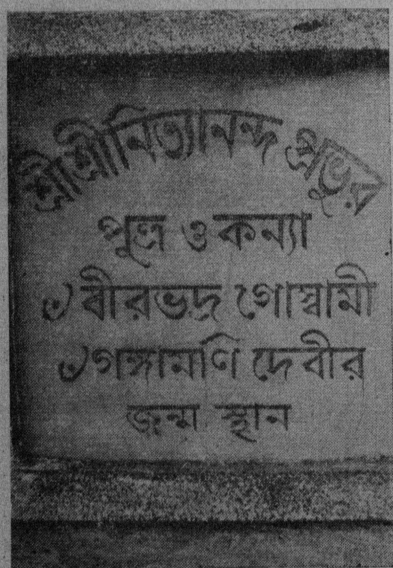 শ্রীশ্রীনিত্যানন্দ প্রভুর
পুত্র ও কন্যা
৺বীরভদ্র গোস্বামী
৺গঙ্গামণি দেবীর
জন্ম স্থান